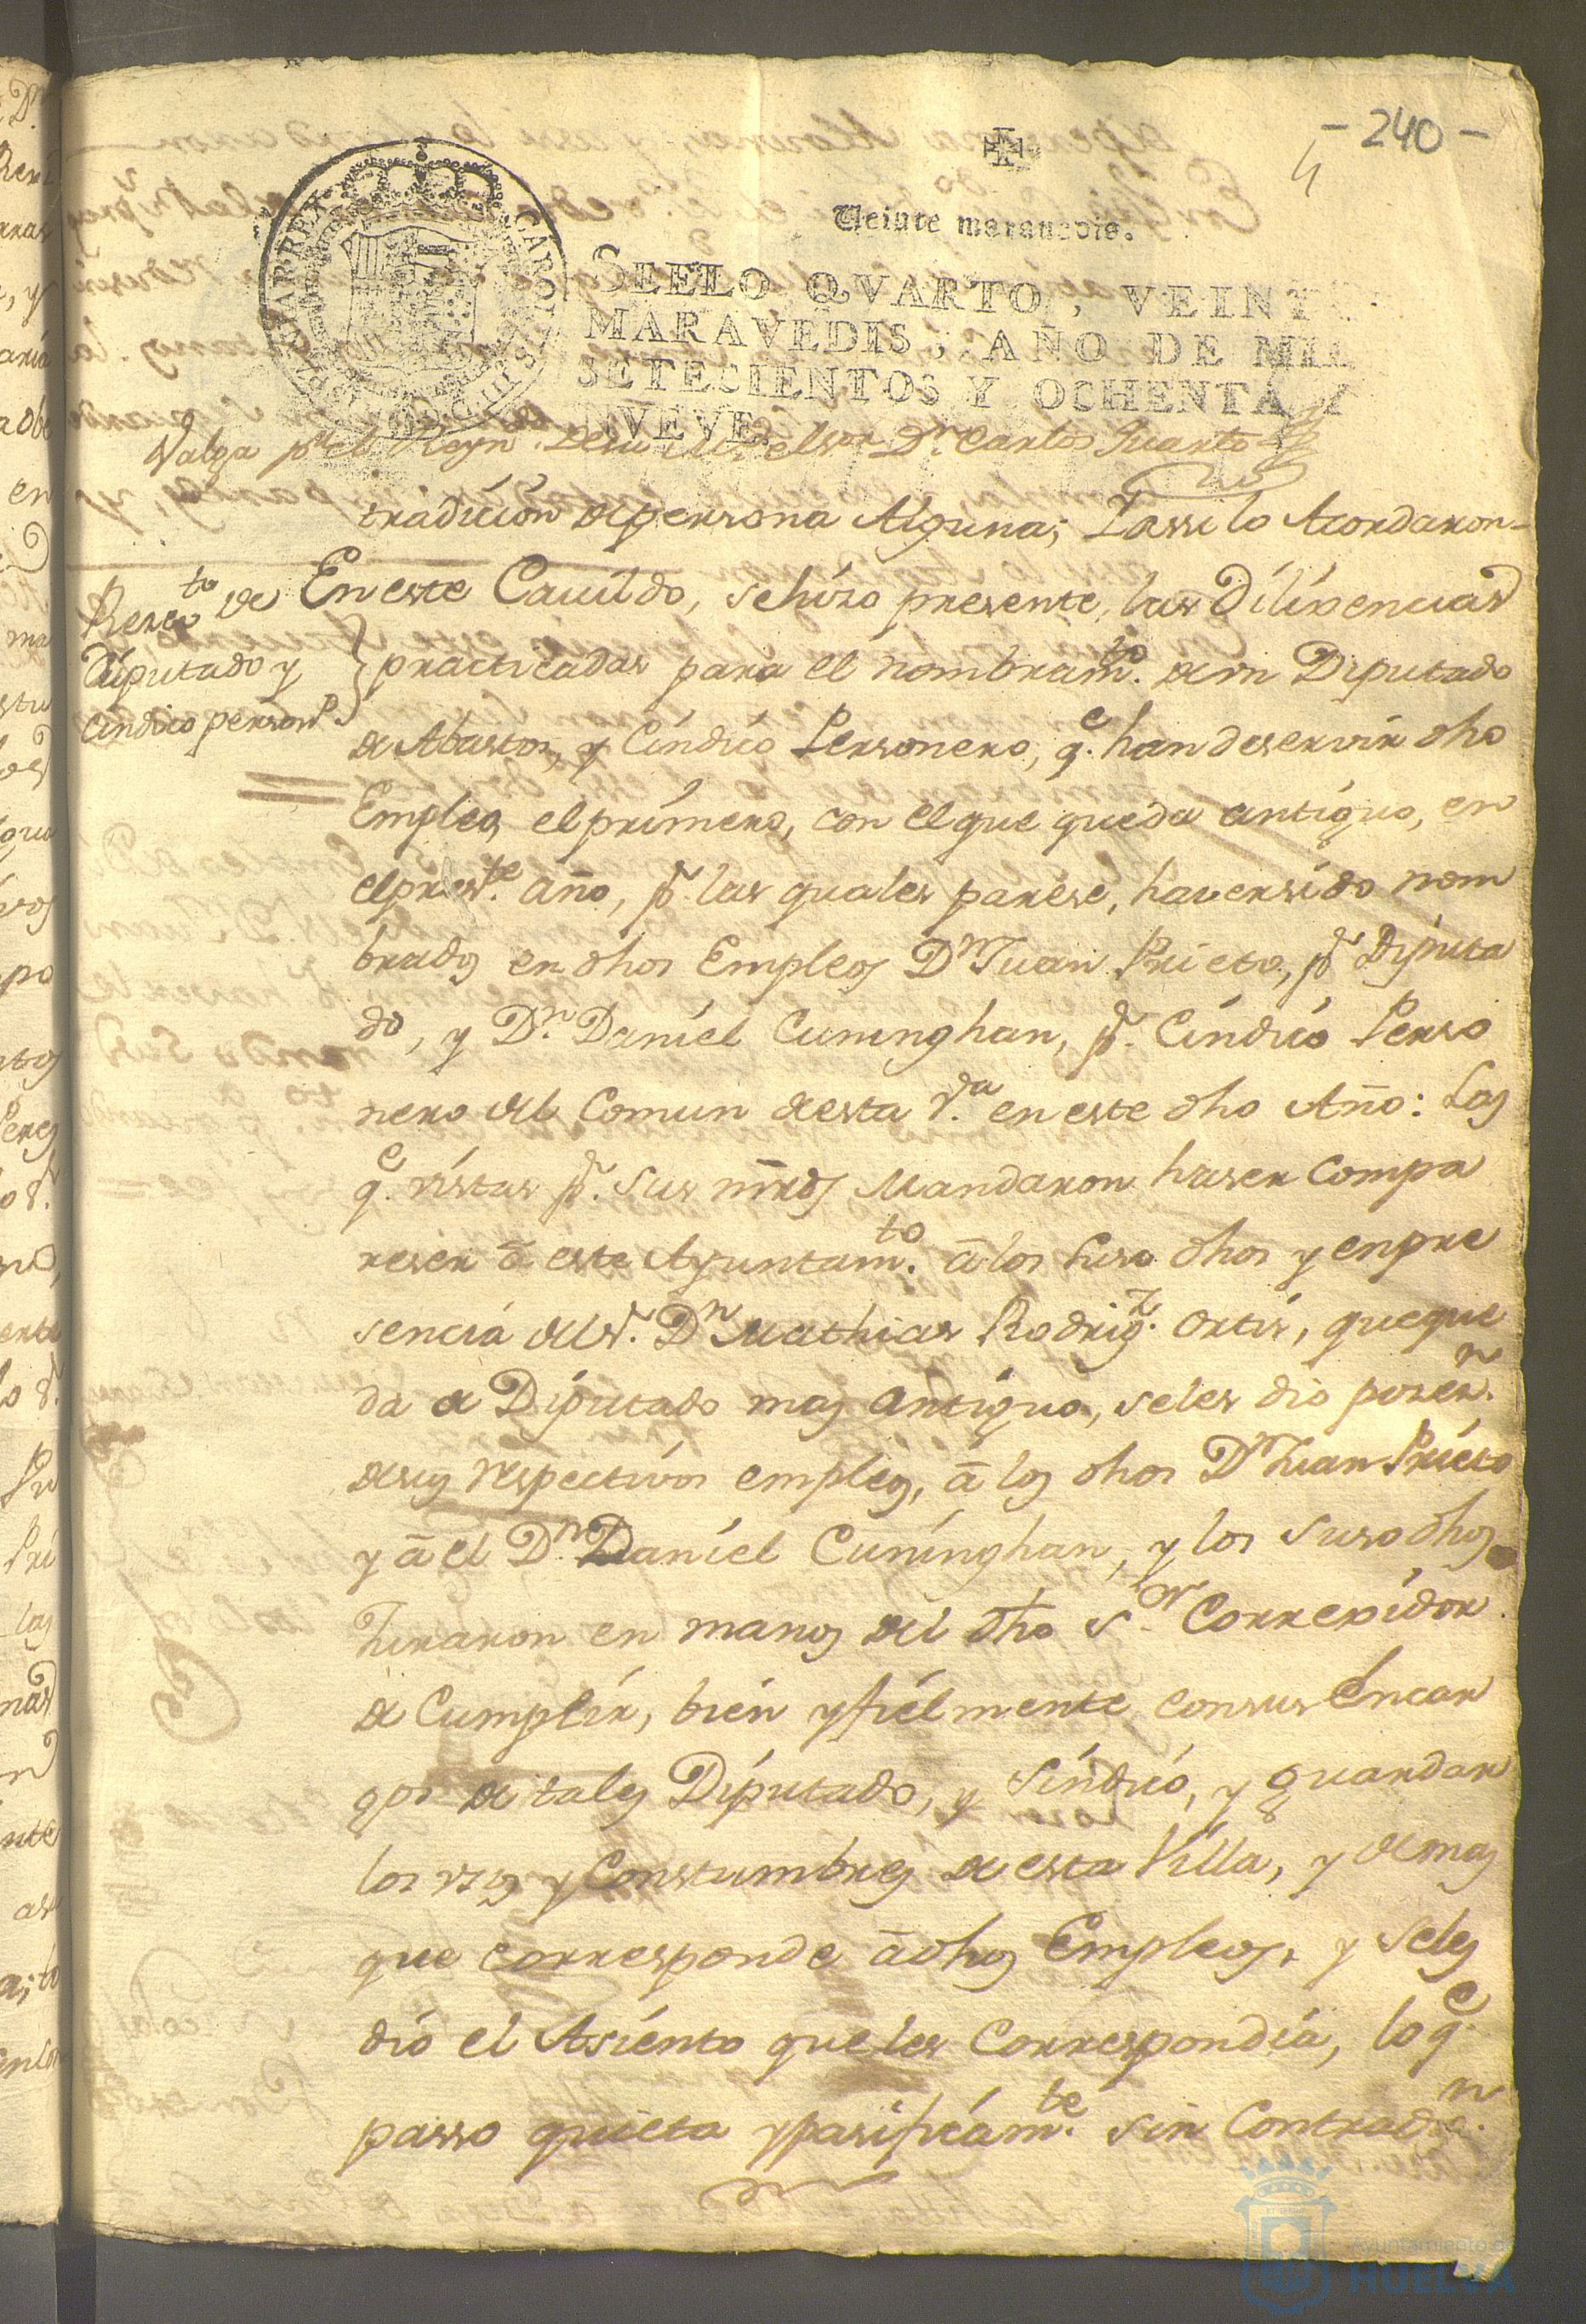 - 240 -
4
Veinte maravedis.
SEELO QVARTO, VEINTE
MARAVEDIS, AÑO DE MIL
SETECIENTOS Y OCHENTA Y
NVEVE.
Valga pr. el Reyn. de su Md. el Sor Dn. Carlos Quarto
tradicion de persona Alguna; Y assi lo Acordaron-
Reseto. de
Diputado y
Cindico personro.
En este Cavildo, se hizo presente, las Dilixencias
practicadas para el nombramto. de un Diputado
de Abastos, y Cindico Personero, qe. han de servir dho
Empleo, el primero, con el que queda antiguo, en
el preste. año, pr. las quales parese, haver sido nom
brados en dhos Empleos Dn Juan Prieto, pr. Diputa
do, y Dn. Daniel Cuninghan, pr. Cindico Perso
nero del Comun de esta Va. en este dho Año: Las
qe. vistas pr. sus mrds Mandaron haser compa
reser a este Ayuntamto. a los suso dhos y en pre
sencia del Sr. Dn Mathias Rodrigz. Ortis, que que
da de Diputado mas antiguo, se les dio posen.
de sus respectivos empleos, a los dhos Dn Juan Prieto
y a el Dn. Daniel Cuninghan, y los susodhos
Juraron en manos del dho Sor. Correxidor
de Cumplir, bien y fielmente, con sus Encar
gos de tales Diputado, y Sindico, y guardar
los usos y Constumbres de esta Villa, y demas
que corresponde a dhos Empleos, y se les
dio el Asiento que les Correspondia, lo qe.
passo quieta y pasificamte. sin Contradn.
Ayuntamiento de
HUELVA